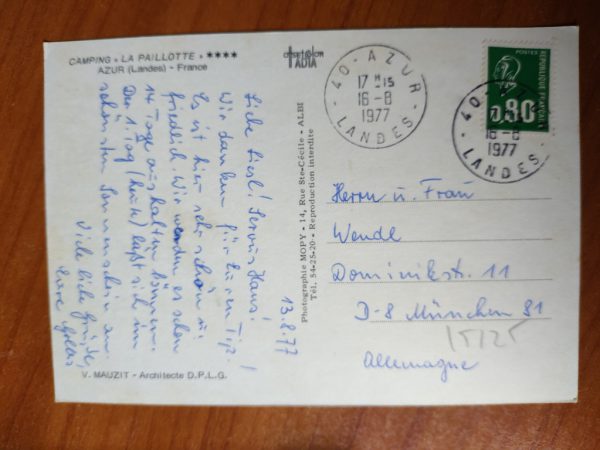 CAMPING « LA PAILLOTTE » ★★★★
AZUR (Landes) - France
13.8.77
Liebe Liesl! Servus Hans!
Wir danken für Euren Tip!
Es ist hier sehr schön u.
friedlich. Wir werden es schon
14 Tage aushalten können.
Der 1. Tag (heute) läßt sich im
schönsten Sonnenschein an.
Viele liebe Grüße,
Eure
V. MAUZIT - Architecte D.P.L.G.
offset color
TADIA
Photographie MOPY - 14, Rue Ste-Cécile - ALBI
Tél. 54-25-20 - Reproduction interdite
40 - AZUR
17 H 15
16-8
1977
LANDES
POSTES
0,80
REPUBLIQUE FRANÇAISE
40 - AZUR
16-8
1977
LANDES
Herrn u. Frau
Wendl
Dominikstr. 11
D-8 München 81
15125
Allemagne